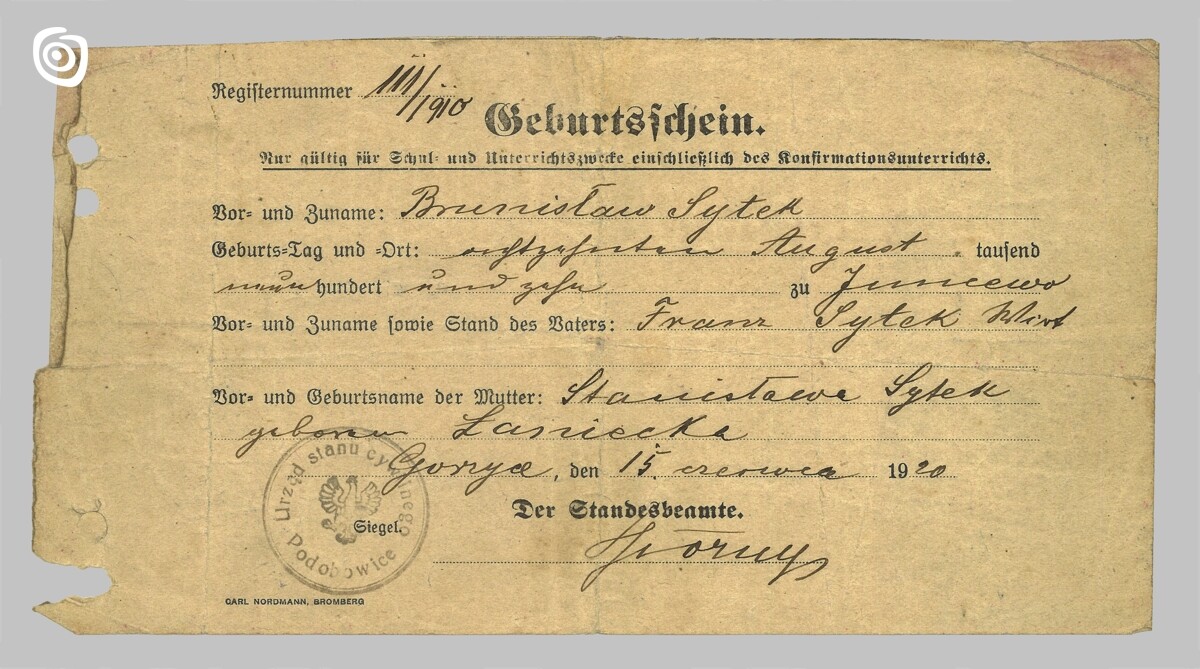 Registernummer 111/1910
Geburtsschein.
Nur gültig für Schul- und Unterrichtszwecke einschließlich des Konfirmationsunterrichts.
Vor- und Zuname: Brunisław Sytek
Geburts-Tag und -Ort: achtzehnten August tausend
neunhundert und zehn zu Juncewo
Vor- und Zuname sowie Stand des Vaters: Franz Sytek Wirt
Vor- und Geburtsname der Mutter: Stanisława Sytek
geborene Łaniecka
Gorzyce, den 15. czerwca 1920
Der Standesbeamte.
Siegel.
Urząd stanu cywilnego
Podobowice
CARL NORDMANN, BROMBERG